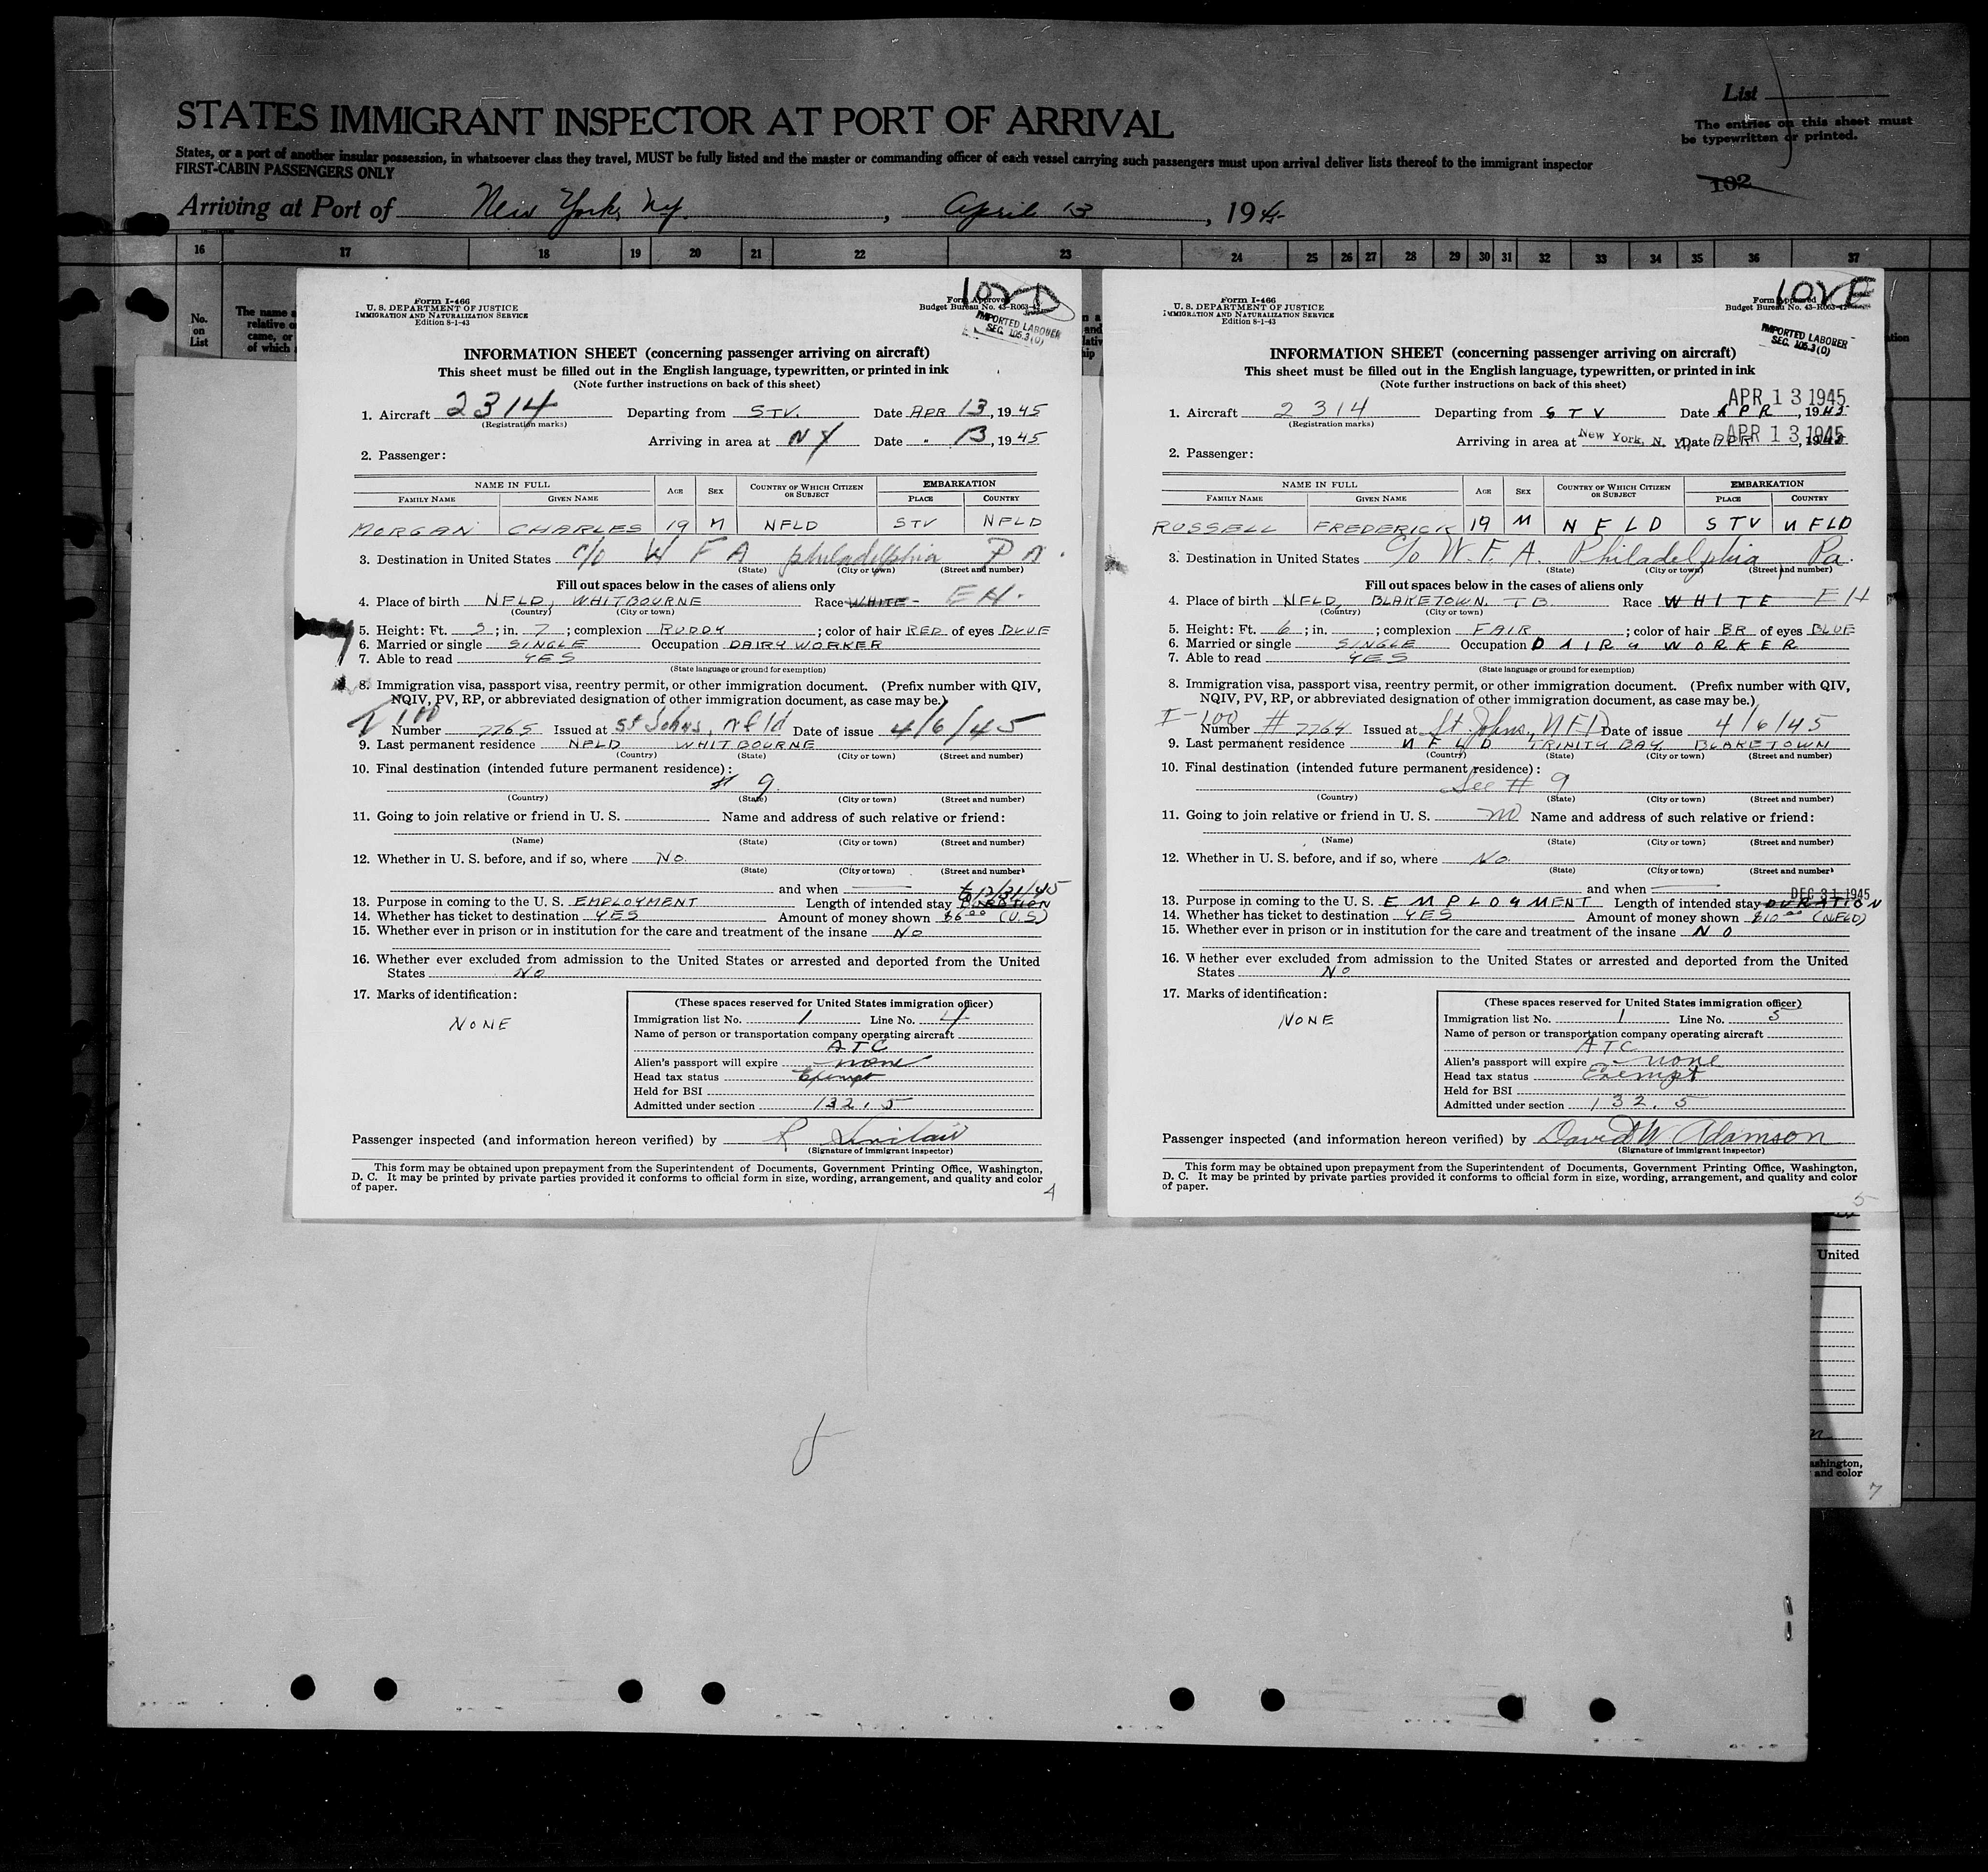 STATES IMMIGRANT INSPECTOR AT PORT OF ARRIVAL
List
The entries on this sheet must
be typewritten or printed.
States, or a port of another insular possession, in whatsoever class they travel, MUST be fully listed and the master or commanding officer of each vessel carrying such passengers must upon arrival deliver lists thereof to the immigrant inspector
FIRST-CABIN PASSENGERS ONLY
102
Arriving at Port of New York, NY. , April 13 , 1945
16 17 18 19 20 21 22 23 24 25 26 27 28 29 30 31 32 33 34 35 36 37
No.
on
List
The name a
relative o
came, or
of which
Form I-466
U. S. DEPARTMENT OF JUSTICE
IMMIGRATION AND NATURALIZATION SERVICE
Edition 8-1-43
Form Approved
Budget Bureau No. 43-R063-42
IMPORTED LABORER
SEC. 105.3 (O)
INFORMATION SHEET (concerning passenger arriving on aircraft)
This sheet must be filled out in the English language, typewritten, or printed in ink
(Note further instructions on back of this sheet)
1. Aircraft 2314 Departing from STV. Date APR 13, 1945
(Registration marks)
Arriving in area at NY Date " 13, 1945
2. Passenger:
NAME IN FULL AGE SEX COUNTRY OF WHICH CITIZEN OR SUBJECT EMBARKATION
FAMILY NAME GIVEN NAME PLACE COUNTRY
MORGAN CHARLES 19 M NFLD STV NFLD
3. Destination in United States c/o W F A philadelphia PA.
(State) (City or town) (Street and number)
Fill out spaces below in the cases of aliens only
4. Place of birth NFLD, WHITBOURNE Race WHITE EH.
(Country) (City or town)
5. Height: Ft. 5; in. 7; complexion RUDDY; color of hair RED of eyes BLUE
6. Married or single SINGLE Occupation DAIRY WORKER
7. Able to read YES
(State language or ground for exemption)
8. Immigration visa, passport visa, reentry permit, or other immigration document. (Prefix number with QIV,
NQIV, PV, RP, or abbreviated designation of other immigration document, as case may be.)
I 100
Number 7765 Issued at St Johns, nfld Date of issue 4/6/45
9. Last permanent residence NFLD WHITBOURNE
(Country) (State) (City or town) (Street and number)
10. Final destination (intended future permanent residence):
# 9
(Country) (State) (City or town) (Street and number)
11. Going to join relative or friend in U. S. Name and address of such relative or friend:
(Name) (State) (City or town) (Street and number)
12. Whether in U. S. before, and if so, where No.
(State) (City or town) (Street and number)
and when
to 12/31/45
13. Purpose in coming to the U. S. EMPLOYMENT Length of intended stay DURATION
14. Whether has ticket to destination YES Amount of money shown $6.00 (U.S)
15. Whether ever in prison or in institution for the care and treatment of the insane NO
16. Whether ever excluded from admission to the United States or arrested and deported from the United
States NO
17. Marks of identification:
NONE
(These spaces reserved for United States immigration officer)
Immigration list No. 1 Line No. 4
Name of person or transportation company operating aircraft
ATC
Alien's passport will expire none
Head tax status Exempt
Held for BSI
Admitted under section 132.5
Passenger inspected (and information hereon verified) by R Sinclair
(Signature of immigrant inspector)
This form may be obtained upon prepayment from the Superintendent of Documents, Government Printing Office, Washington,
D. C. It may be printed by private parties provided it conforms to official form in size, wording, arrangement, and quality and color
of paper.
4
Form I-466
U. S. DEPARTMENT OF JUSTICE
IMMIGRATION AND NATURALIZATION SERVICE
Edition 8-1-43
Form Approved
Budget Bureau No. 43-R063-42
IMPORTED LABORER
SEC. 105.3 (O)
INFORMATION SHEET (concerning passenger arriving on aircraft)
This sheet must be filled out in the English language, typewritten, or printed in ink
(Note further instructions on back of this sheet)
APR 13 1945
1. Aircraft 2314 Departing from STV Date APR, 1945
(Registration marks)
Arriving in area at New York, N. Y. Date APR 13 1945
2. Passenger:
NAME IN FULL AGE SEX COUNTRY OF WHICH CITIZEN OR SUBJECT EMBARKATION
FAMILY NAME GIVEN NAME PLACE COUNTRY
RUSSELL FREDERICK 19 M NFLD STV NFLD
3. Destination in United States C/o W.F.A. Philadelphia, Pa.
(State) (City or town) (Street and number)
Fill out spaces below in the cases of aliens only
4. Place of birth NFLD, BLAKETOWN. T B. Race WHITE EH
(Country) (City or town)
5. Height: Ft. 6; in. ; complexion FAIR; color of hair BR of eyes BLUE
6. Married or single SINGLE Occupation DAIRY WORKER
7. Able to read YES
(State language or ground for exemption)
8. Immigration visa, passport visa, reentry permit, or other immigration document. (Prefix number with QIV,
NQIV, PV, RP, or abbreviated designation of other immigration document, as case may be.)
I-100
Number # 7764 Issued at St. Johns, NFD Date of issue 4/6/45
9. Last permanent residence NFLD TRINITY BAY, BLAKETOWN
(Country) (State) (City or town) (Street and number)
10. Final destination (intended future permanent residence):
See # 9
(Country) (State) (City or town) (Street and number)
11. Going to join relative or friend in U. S. no Name and address of such relative or friend:
(Name) (State) (City or town) (Street and number)
12. Whether in U. S. before, and if so, where No.
(State) (City or town) (Street and number)
and when
DEC 31 1945
13. Purpose in coming to the U. S. EMPLOYMENT Length of intended stay DURATION
14. Whether has ticket to destination YES Amount of money shown $10.00 (NFLD)
15. Whether ever in prison or in institution for the care and treatment of the insane NO
16. Whether ever excluded from admission to the United States or arrested and deported from the United
States NO
17. Marks of identification:
NONE
(These spaces reserved for United States immigration officer)
Immigration list No. 1 Line No. 5
Name of person or transportation company operating aircraft
ATC
Alien's passport will expire none
Head tax status Exempt
Held for BSI
Admitted under section 132.5
Passenger inspected (and information hereon verified) by David W Adamson
(Signature of immigrant inspector)
This form may be obtained upon prepayment from the Superintendent of Documents, Government Printing Office, Washington,
D. C. It may be printed by private parties provided it conforms to official form in size, wording, arrangement, and quality and color
of paper.
5
United
ashington,
and color
7